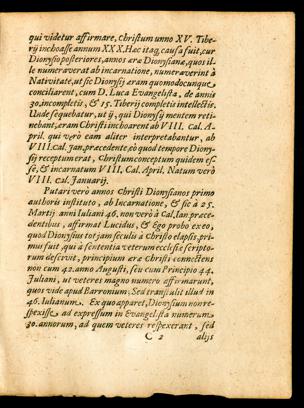 qui videtur affirmare, Christum unno XV. Tibe-
rij inchoasse annum XXX. Hac itaq, causa fuit, cur
Dionysio posteriores, annos æra Dionysianæ, quos il-
le numeraverat ab incarnatione, numeraverint à
Nativitate, ut sic Dionysij æram quomodocunque
conciliarent, cum D. Luca Evangelista, de annis
30. incompletis, & 15. Tiberij completis intellectis.
Unde sequebatur, ut ij, qui Dionysij mentem reti-
nebant, æram Christi inchoarent ab VIII. Cal. A-
pril. qui verò eam aliter interpretabantur, ab
VIII. cal. Jan. præcedente, eò quod tempore Diony-
sij receptum erat, Christum conceptum quidem es-
se, & incarnatum VIII. Cal. April. Natum verò
VIII. cal. Januarij.
Putari verò annos Christi Dionysianos primo
authoris instituto, ab Incarnatione, & sic à 25.
Martij anni Juliani 46. non verò à Cal. Jan. præce-
dentibus, affirmat Lucidus, & Ego probo ex eo,
quod Dionysius tot jam seculi à Christo elapsis, pri-
mus fuit, qui à sententia veterum ecclesiæ scripto-
rum descivit, principium æræ christi connectens
non cum 42. anno Augusti, seu cum Principio 44.
Juliani, ut veteres magno numero affirmarunt,
quos vide apud Barronium; Sed transtulit illud in
46. Iulianum. Ex quo apparet, Dionysium non re-
spexisse ad expressum in Evangelista numerum
30. annorum, ad quem veteres respexerant, sed
C 2 alijs